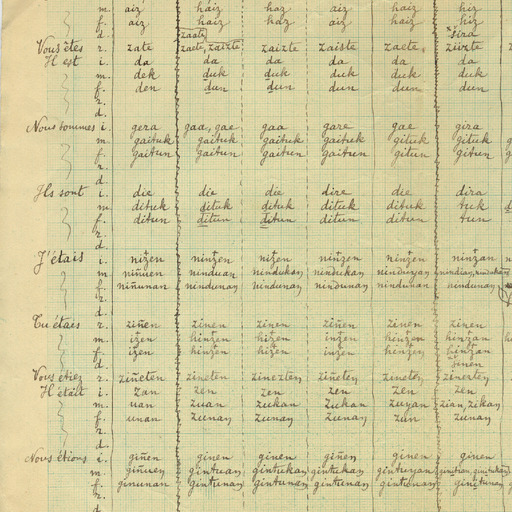 m. aiz haiz haz aiz haiz hiz
f. aiz haiz haz aiz haiz hiz
d. zaate zira
Vous êtes r. zate zaete, zaizte zaizte zaiste zaete, ziizte
Il est i. da da da da da da
m. dek duk duk duk duk duk
f. den dun dun dun dun dun
r.
d.
Nous sommes i. gera gaa, gae gaa gare gae gira
m. gaituk gaituk gaituk gaituk gituk gituk
f. gaitun gaitun gaitun gaitun gitun gitun
r.
d.
Ils sont i. die die die dire die dira
m. dituk dituk dituk dituk dituk tuk
f. ditun ditun ditun ditun ditun tun
r.
d.
J'étais i. nitzen nintzen nintzen nintzen nintzen nintzan
m. niñuen ninduan nindukan nindukan
f. niñunan nindunan nindunan nindunan nindunan nindunan
r.
d.
Tu étais r. ziñen zinen zinen ziñen zinen zinen
m. itzen hintzen hitzen intzen hintzen hintzan
f. itzen hintzen hitzen intzen hintzen hintzan
d. zinen
Vous étiez r. ziñeten zineten zinezten zineten
Il était i. zan zen zen zen zen zen
m. uan zuan zukan zukan zuyan zian, zikan
f. unan zunan zunan zunan zun zunan
r.
d.
Nous étions i. giñen ginen ginen giñen ginen ginen
m. giñuen gintuan gintukan gintukan gintuyan
f. ginunan gintunan gintunan gintunan gintunan gintunan
r.
d.